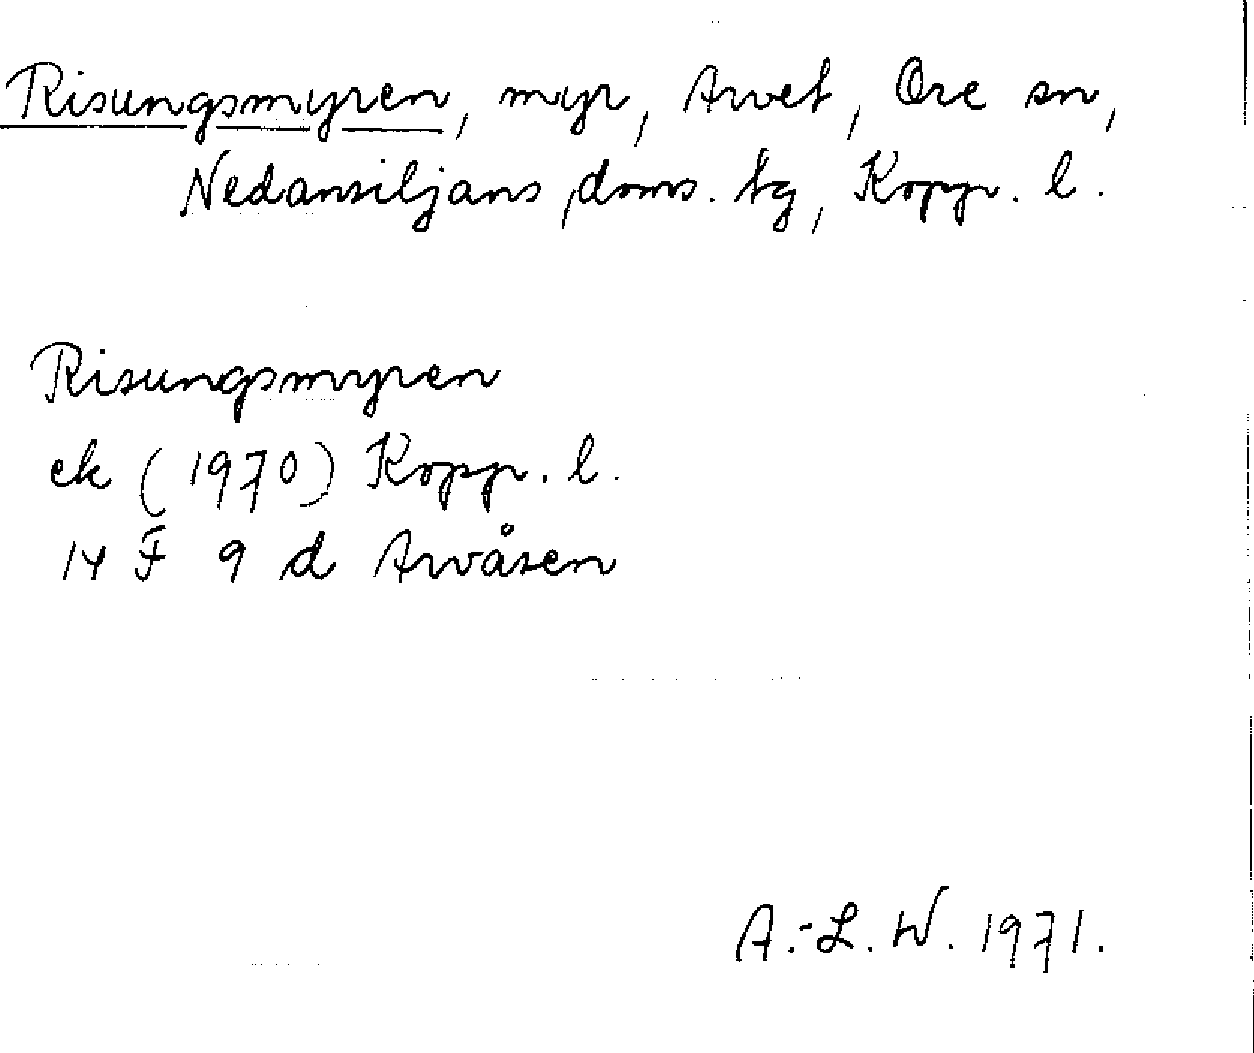 Risungsmyren, myr, Arvet, Ore sn,
Nedansiljans doms. tg, Kopp. l.
Risungsmyren
ek (1970) Kopp. l.
14 F 9 d Arvåsen
A.-L. W. 1971.